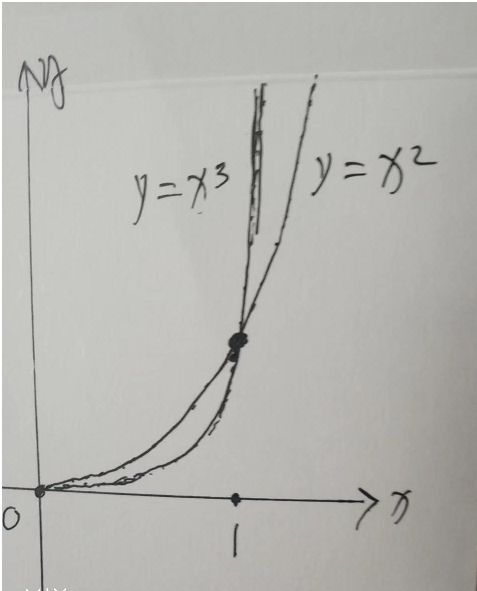 y
y = x³
y = x²
0
1
x